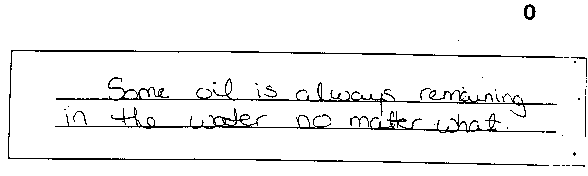 0
Some oil is always remaining
in the water no matter what.